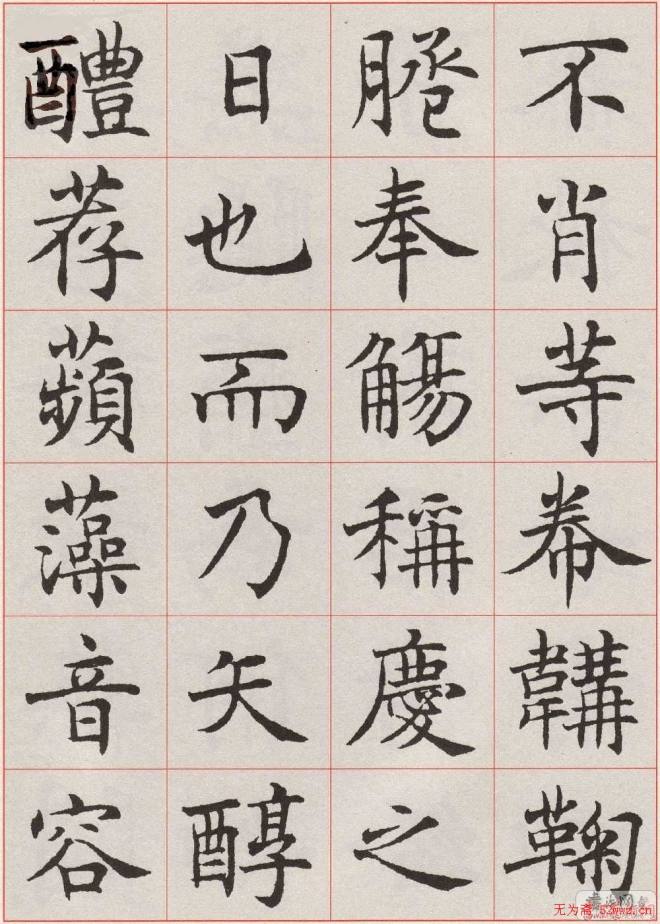 不肖等帣韝鞠
奉觴稱慶之
日也而乃矢醇
醴荐蘋藻音容
无为斋 53wwz.cn